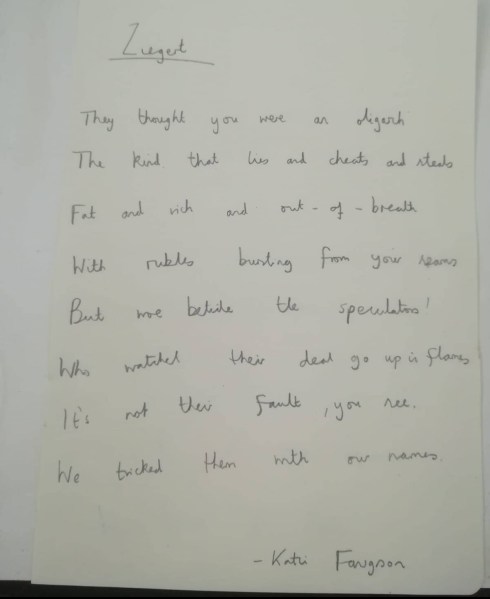 Ziegert
They thought you were an oligarch
The kind that lies and cheats and steals
Fat and rich and out-of-breath
With rubles bursting from your seams
But woe betide the speculators!
Who watched their deal go up in flames
It's not their fault, you see.
We tricked them with our names.
- Katri